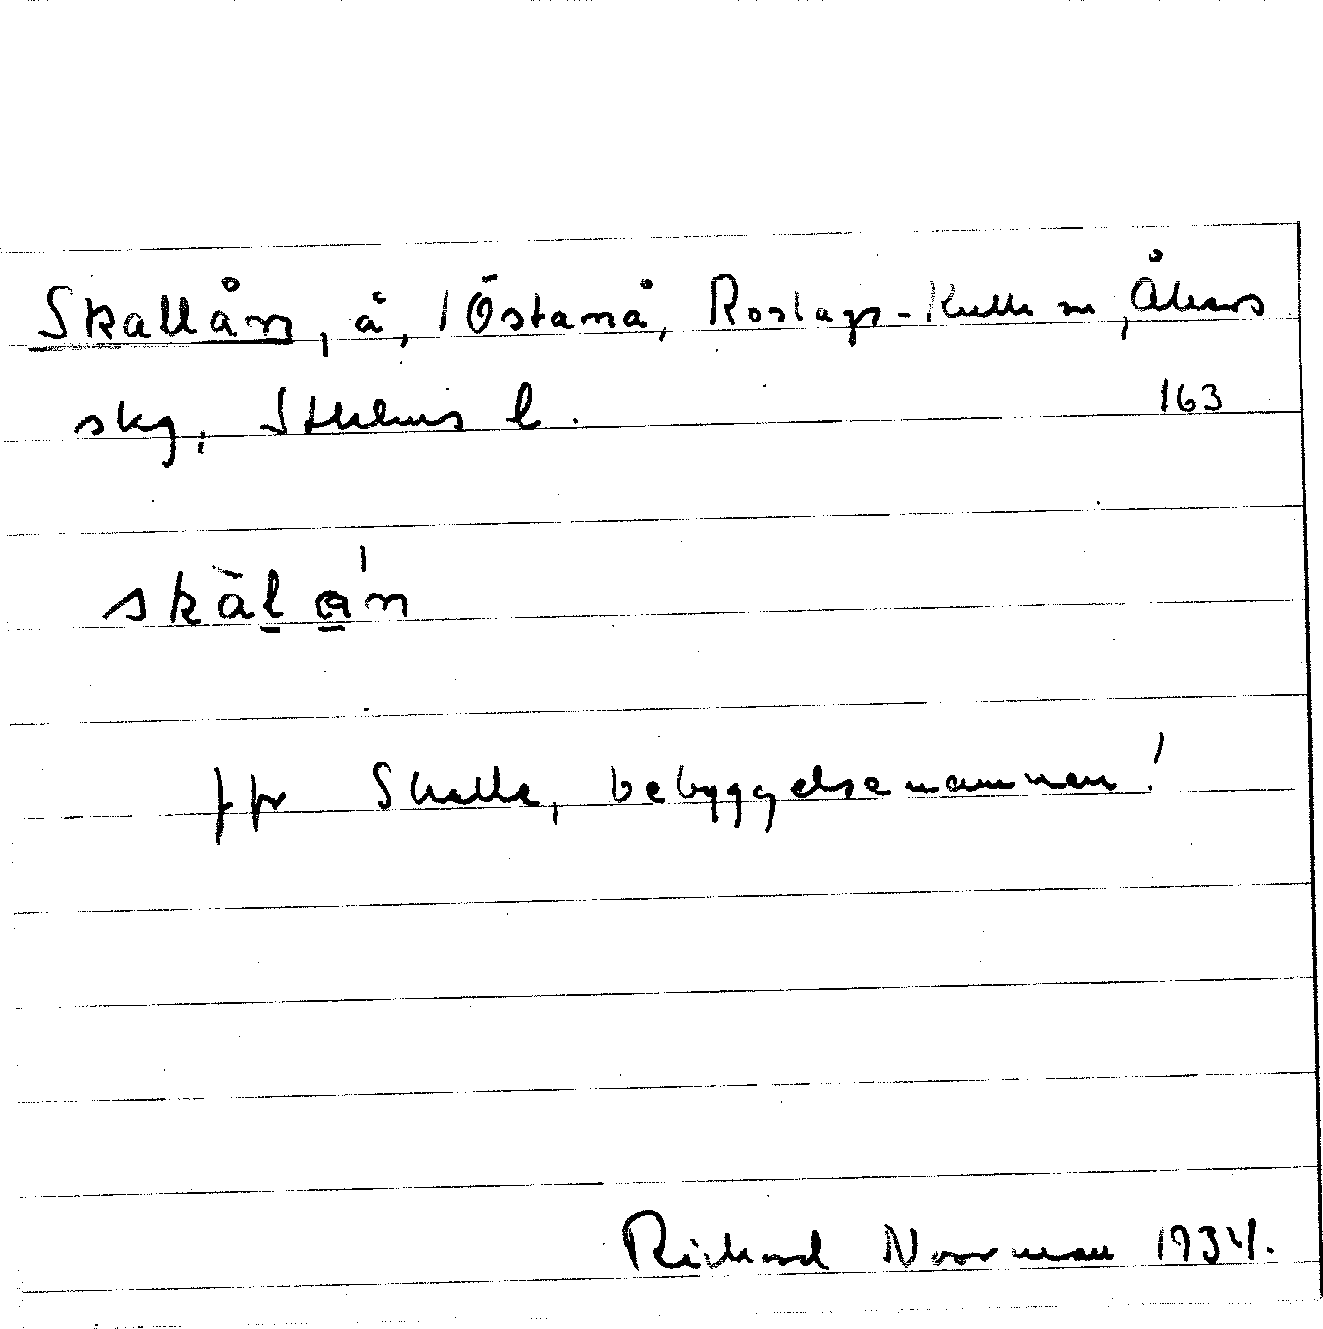 Skallån, å, i Östanå, Roslags-Kulla sn, Åkers
skg, Sthlms l. 163
skàlá'n
jfr Skalla, bebyggelsenamnen!
Rickard Noorman 1934.